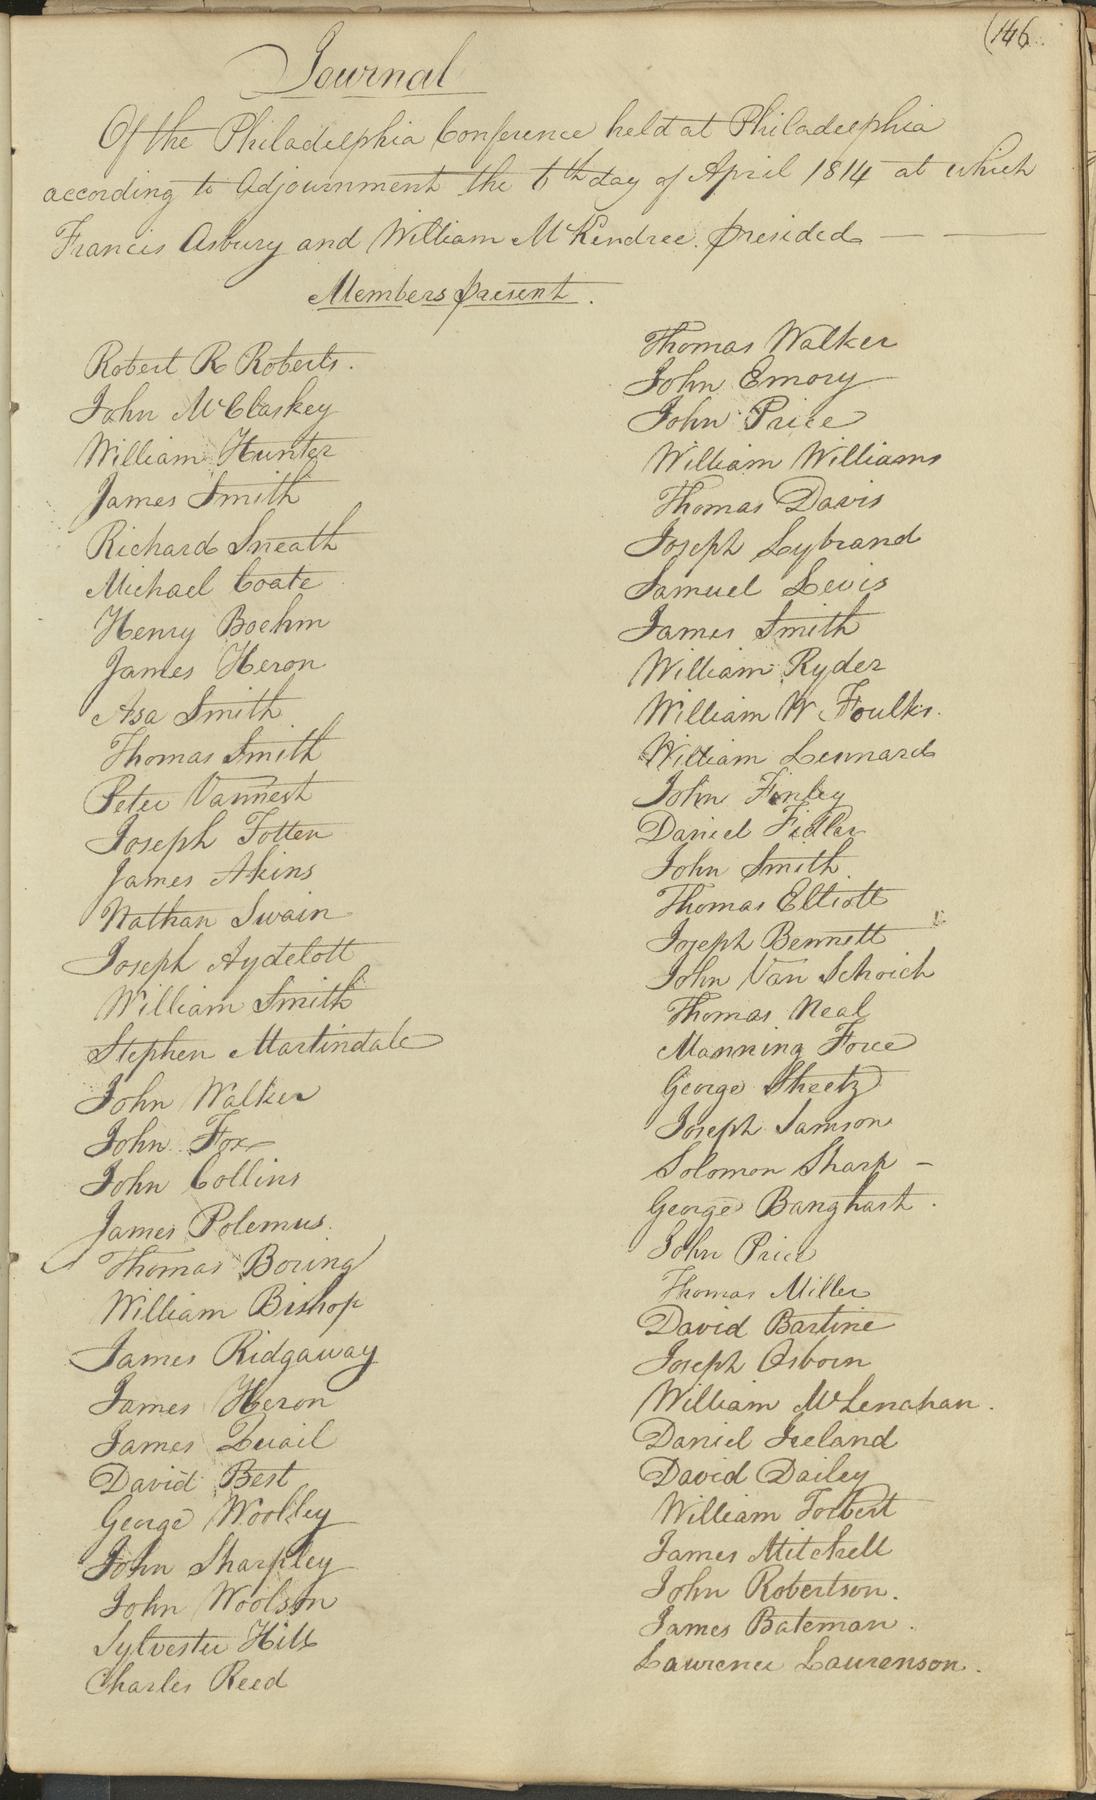 (146
Journal
Of the Philadelphia Conference held at Philadelphia
according to Adjournment the 6th day of April 1814 at which
Francis Asbury and William McKendree presided
Members present.
Robert R Roberts.
John McClaskey
William Hunter
James Smith
Richard Sneath
Michael Coate
Henry Boehm
James Heron
Asa Smith
Thomas Smith
Peter Vannest
Joseph Totten
James Akins
Nathan Swain
Joseph Aydelott
William Smith
Stephen Martindale
John Walker
John Fox
John Collins
James Polemus.
Thomas Boring
William Bishop
James Ridgaway
James Heron
James Quail
David Best
George Woolley
John Sharpley
John Woolson
Sylvester Hill
Charles Reed
Thomas Walker
John Emory
John Price
William Williams
Thomas Davis
Joseph Lybrand
Samuel Levis
James Smith
William Ryder
William W Foulks.
William Lennard
John Finley
Daniel Fidler
John Smith
Thomas Elliott
Joseph Bennett
John Van Schoick
Thomas Neal
Manning Force
George Sheetz
Joseph Samson
Solomon Sharp -
George Banghart.
John Price
Thomas Miller
David Bartine
Joseph Osborn
William McLenahan.
Daniel Ireland
David Dailey
William Torbert
James Mitchell
John Robertson.
James Bateman.
Lawrence Laurenson.